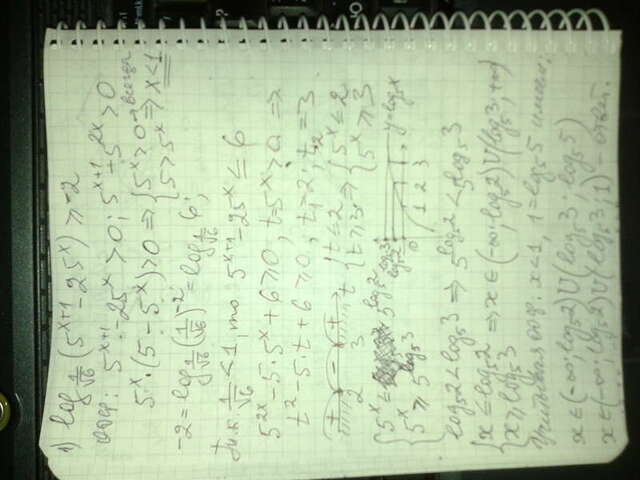 1) log_{1/√6} (5^{x+1} - 25^x) ≥ -2
оофр: 5^{x+1} - 25^x > 0; 5^{x+1} - 5^{2x} > 0
5^x · (5 - 5^x) > 0 ⇒ { 5^x > 0 - всегда
5 > 5^x ⇒ x < 1
-2 = log_{1/√6} (1/√6)^{-2} = log_{1/√6} 6;
т.к. 1/√6 < 1, то 5^{x+1} - 25^x ≤ 6
5^{2x} - 5·5^x + 6 ≥ 0, t = 5^x > 0 ⇒
t² - 5·t + 6 ≥ 0, t₁ = 2; t₂ = 3
2 3 t { t ≤ 2 t ≥ 3 ⇒ { 5^x ≤ 2 5^x ≥ 3
{ 5^x ≤ 5^{log_5 2}
5^x ≥ 5^{log_5 3}
log_5 3
log_5 2
0 1 2 3
y = log_5 x
log_5 2 < log_5 3 ⇒ 5^{log_5 2} < 5^{log_5 3}
{ x ≤ log_5 2
x ≥ log_5 3 ⇒ x ∈ (-∞; log_5 2) U (log_5 3; +∞)
Учитывая оофр. x < 1, 1 = log_5 5 имеем:
x ∈ (-∞; log_5 2) U (log_5 3; log_5 5)
x ∈ (-∞; log_5 2) U (log_5 3; 1) - ответ.